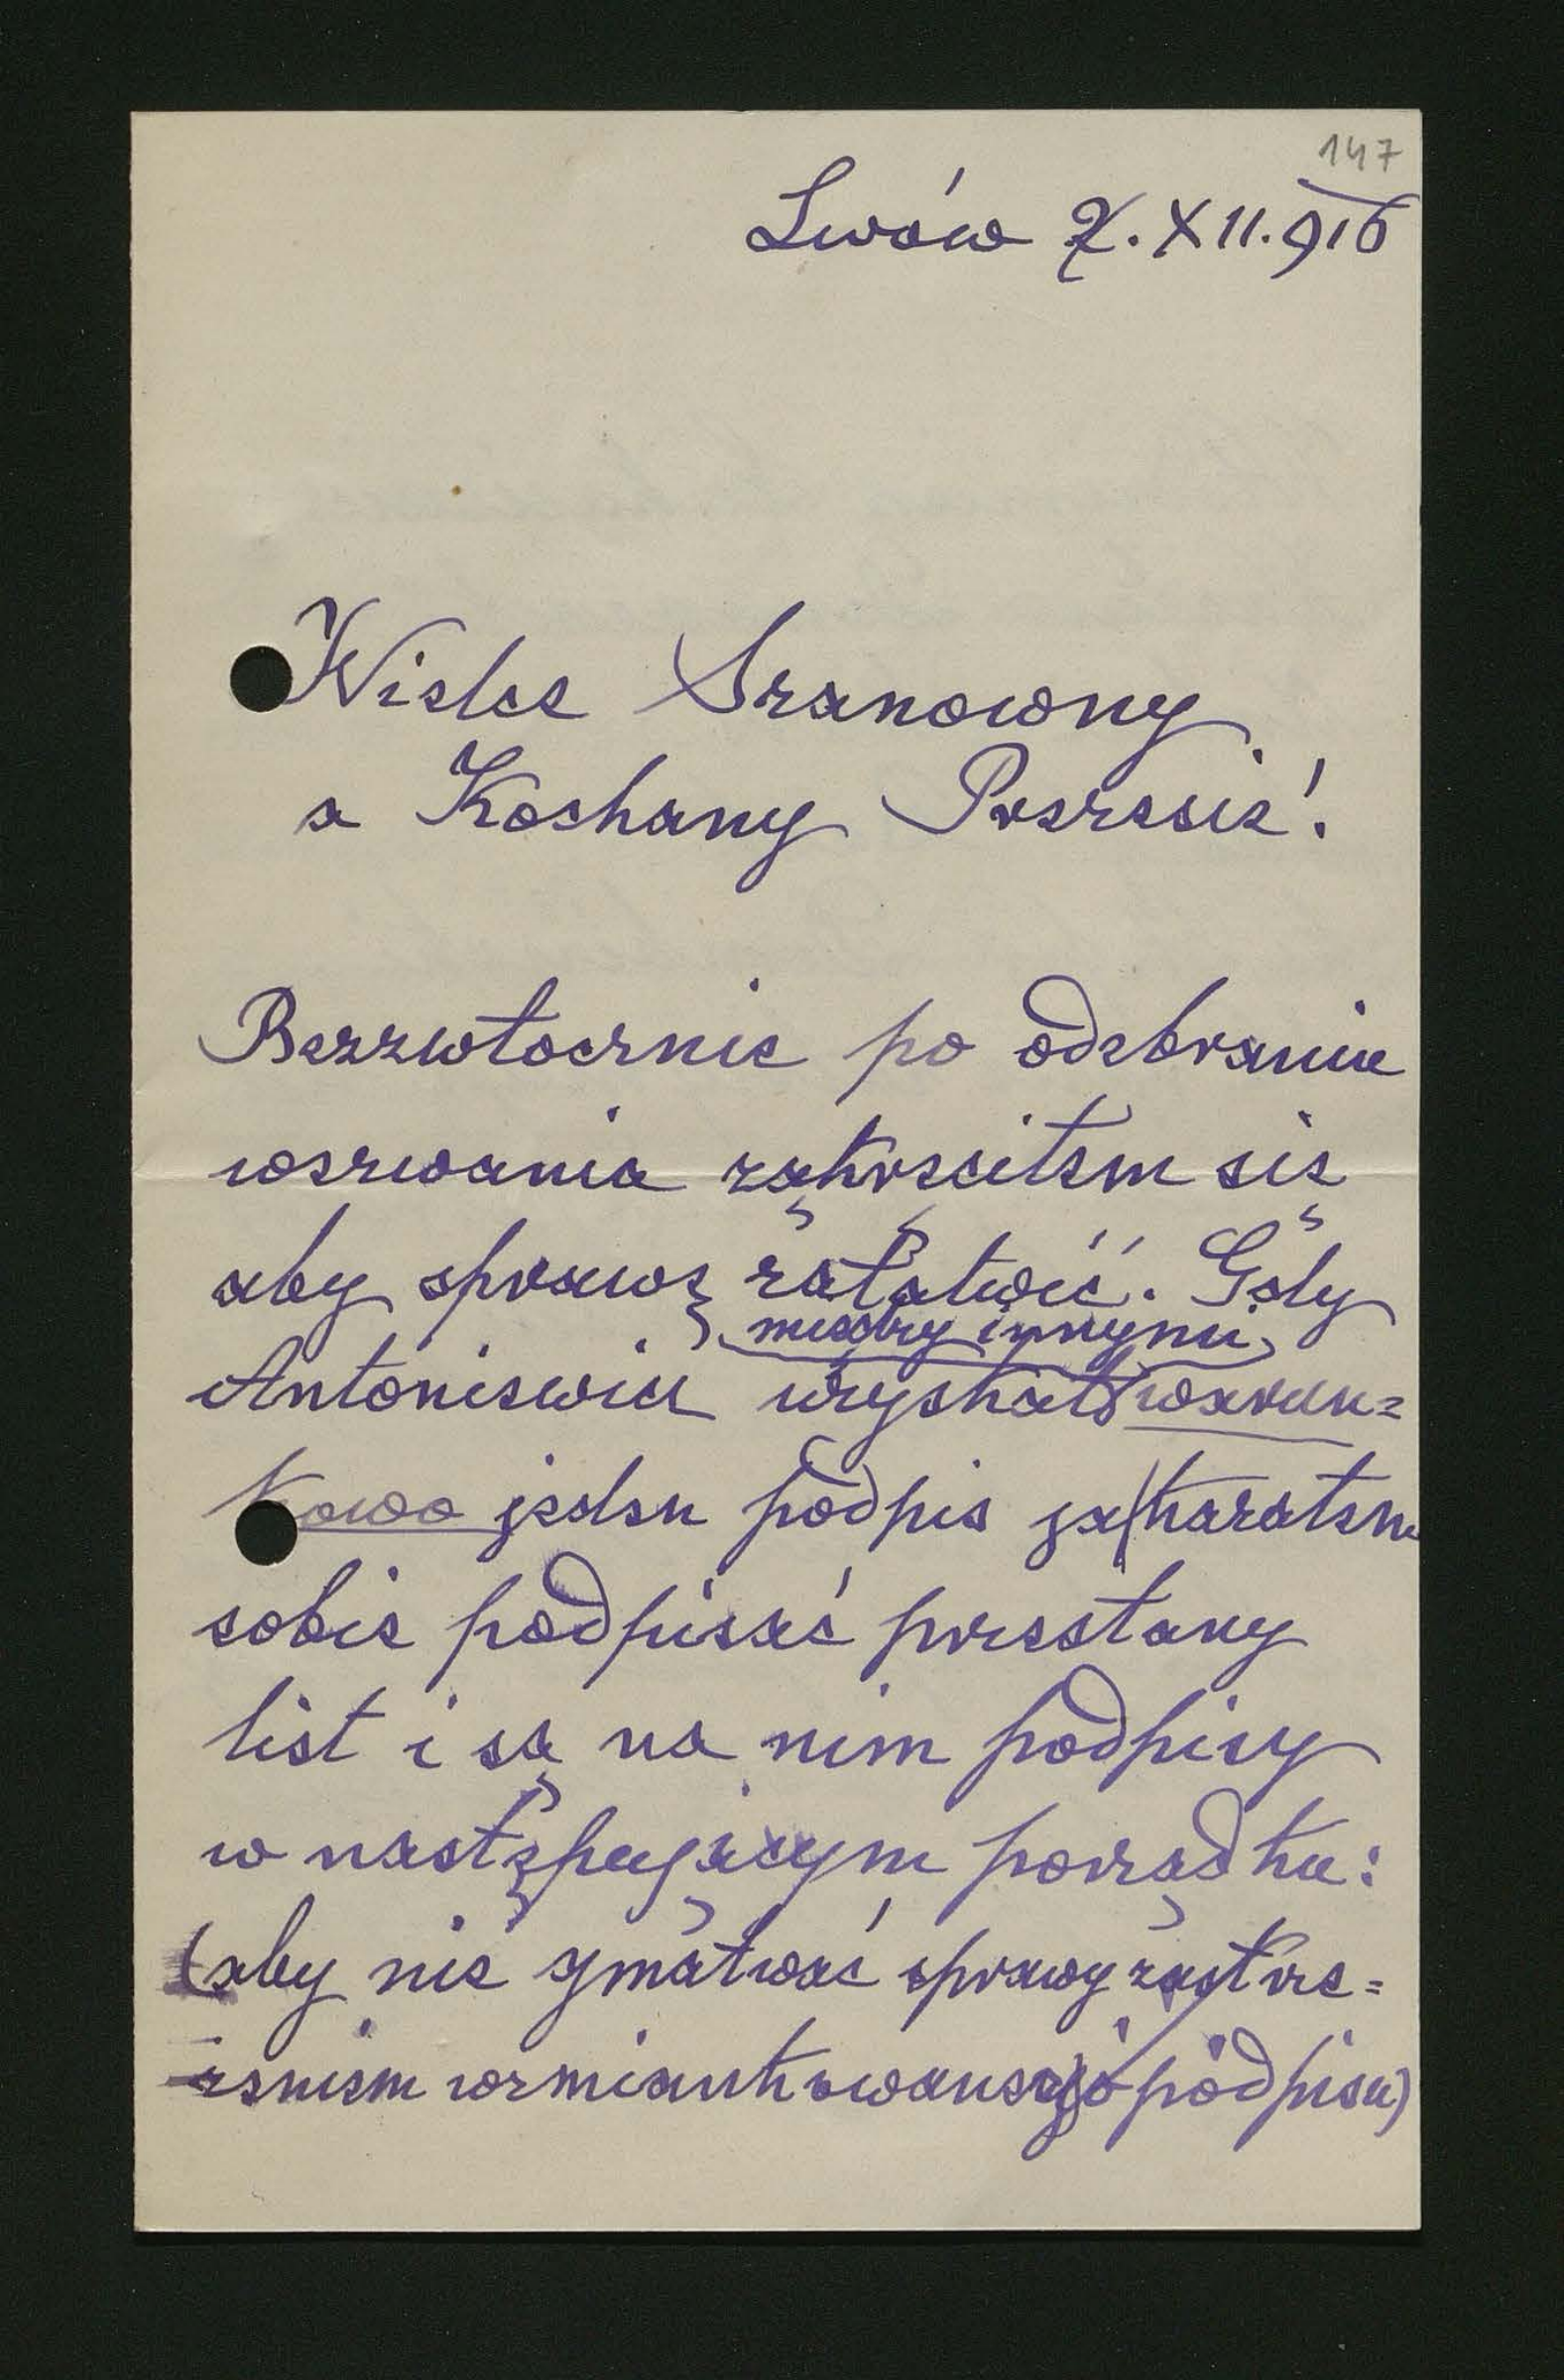 147
Lwów 7.XII.916
Wielce Szanowny
a Kochany Prezesie!
Bezzwłocznie po odebraniu
wezwania zakręciłem się
aby sprawę załatwić. Gdy
między innymi
Antoniewicz uzyskał warun=
kowo jeden podpis ja kazałem
sobie podpisać przesłany
list i są na nim podpisy
w następującym porządku:
(aby nie gmatwać sprawy zastrze=
żeniem wzmiankowanego podpisu)